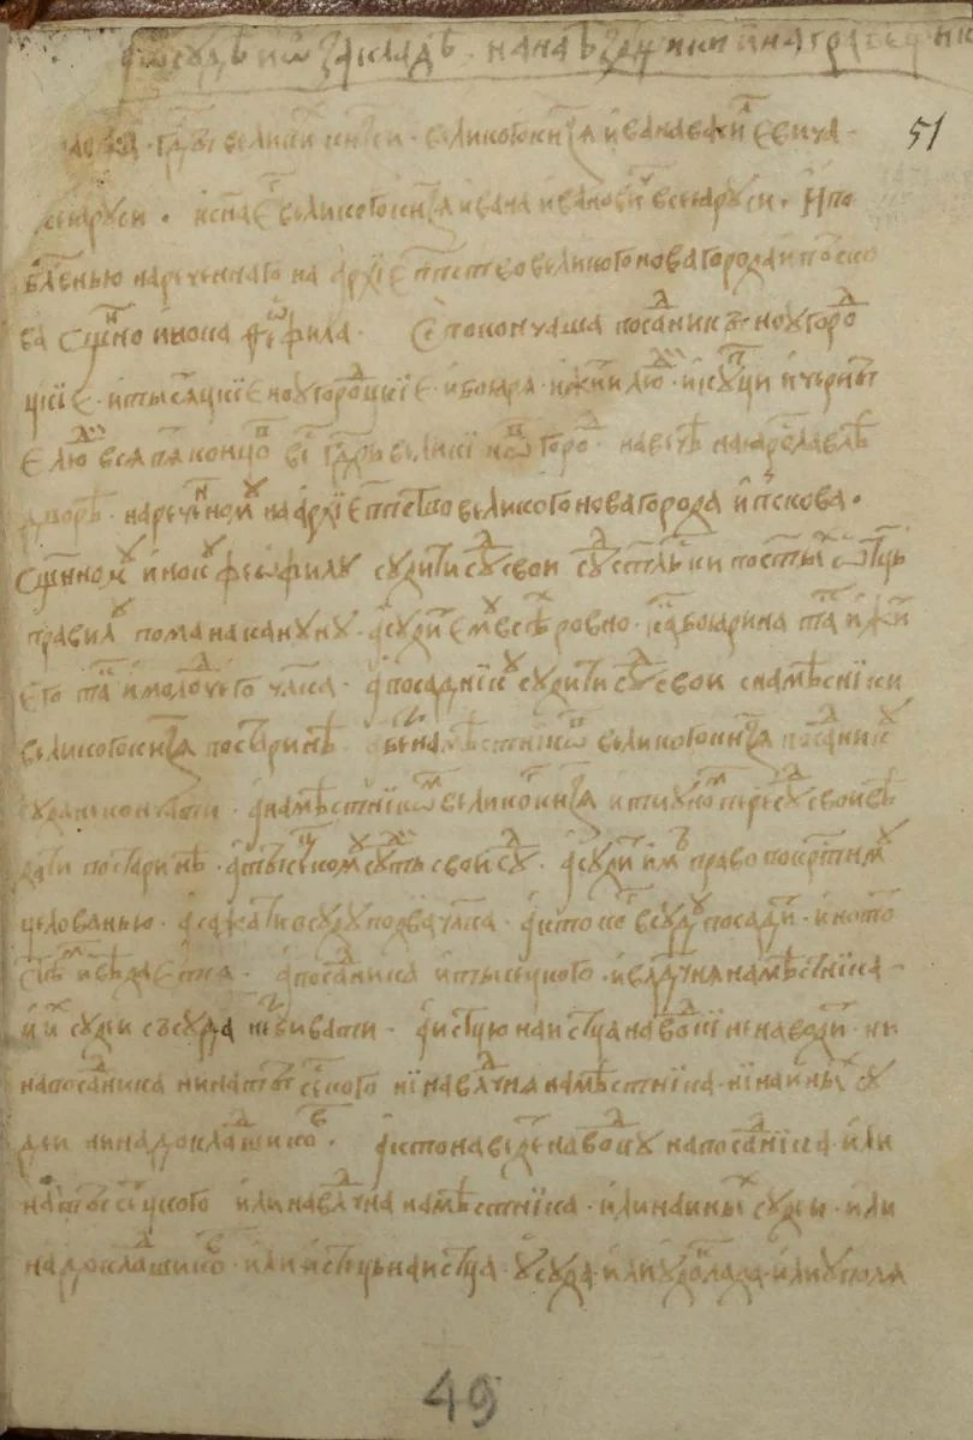 ѿ сꙋдѣ и ѿ закладѣ на наѣздщики и на грабещики
51
доклад гд҃рѡ великїи кн҃зеи великого кн҃зѧ ивана васи́лⷧевича
всеꙗ рꙋси и сн҃а е́ великого кн҃зѧ ивана иванови́ч всеꙗ рꙋси и по
бл҃венью нареченнаго на архїеп҃пство великого нова города и пско
ва сщ҃нно инока феѡфила Се покончаша посадники ноугоро
цкїе и тысѧцкїе ноугороцкїе и боꙗря и жи́и лю и кꙋпци и черны
е лю всѧ пѧ концо ве гд҃рь великї новгоро на вечѣ на ꙗрославлѣ
дворѣ нареченном на архїеп҃пство великого нова города и пскова
сщ҃нном инок феѡфилꙋ сꙋдити сꙋ свои сꙋ ст҃льски по ст҃ых ѿц҃ь
правил по манакануну а сꙋди ем всѣ ровно как боꙗрина та и жи
его та и молочего ч҃лка а посадник сꙋдити сꙋ свои с намѣсники
великого кн҃зѧ по старинѣ а без намѣстников великого кн҃зѧ посаник
сꙋда не кончати а намѣстником велико кн҃зѧ и тиуно пере сꙋ свои вѣ
дати по старинѣ а тысецком сꙋдить свои сꙋ а сꙋди им право по крⷭтном
целованью а сажати в сꙋдꙋ по два ч҃лка а кто ко в сꙋдꙋ посади ино то
с тѣ и вѣдаетца а посаника и тысецкого и влⷣчнѧ намѣстника
и и сꙋди с сꙋда не збивати а истцю на истца наводки не наводи ни
на посаника ни на тысецкого ни на влⷣчнѧ намѣстника ни на иных сꙋ
деи ни на докладшиков а кто наведе наводкꙋ на посаника или
на тысецкого или на влⷣчна намѣстника или на иных сꙋди или
на докладшиков или истець на истца ꙋ сꙋда или ꙋ доклада или ꙋ полѧ
49